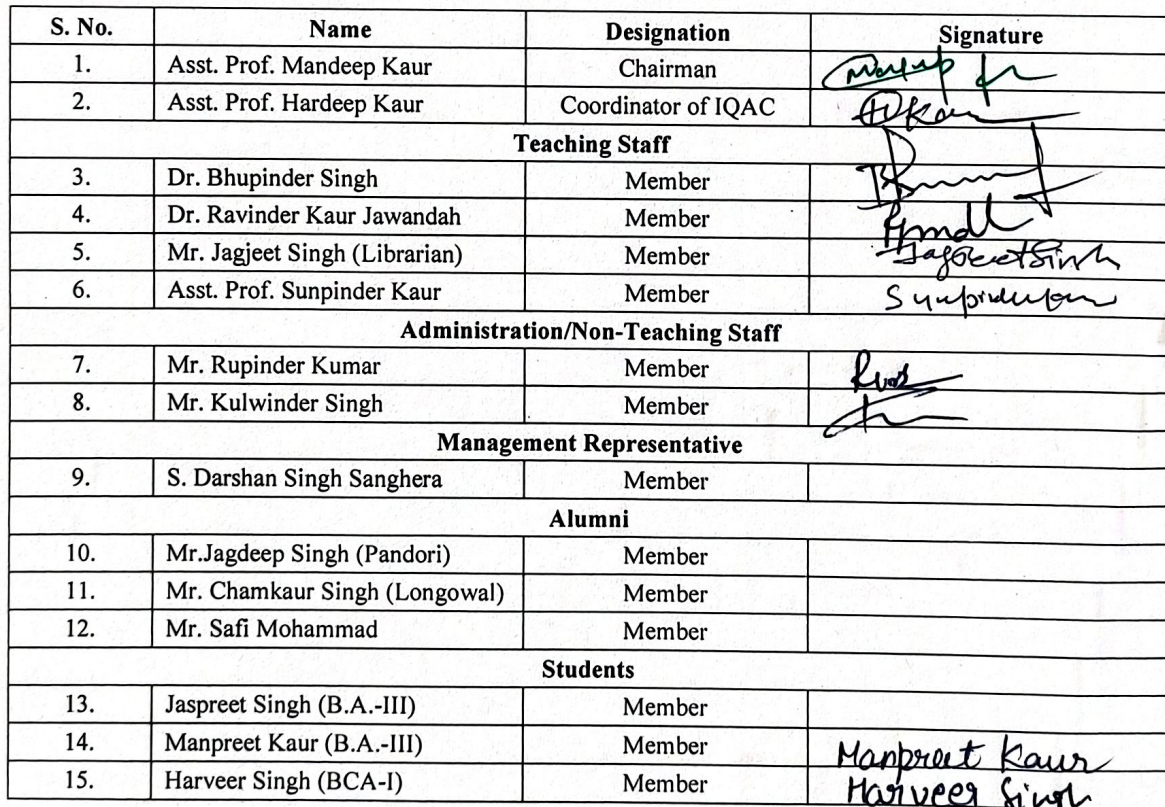 S. No. Name Designation Signature
1. Asst. Prof. Mandeep Kaur Chairman
2. Asst. Prof. Hardeep Kaur Coordinator of IQAC
Teaching Staff
3. Dr. Bhupinder Singh Member
4. Dr. Ravinder Kaur Jawandah Member
5. Mr. Jagjeet Singh (Librarian) Member Jagjeet Singh
6. Asst. Prof. Sunpinder Kaur Member
Administration/Non-Teaching Staff
7. Mr. Rupinder Kumar Member
8. Mr. Kulwinder Singh Member
Management Representative
9. S. Darshan Singh Sanghera Member
Alumni
10. Mr.Jagdeep Singh (Pandori) Member
11. Mr. Chamkaur Singh (Longowal) Member
12. Mr. Safi Mohammad Member
Students
13. Jaspreet Singh (B.A.-III) Member
14. Manpreet Kaur (B.A.-III) Member Manpreet Kaur
15. Harveer Singh (BCA-I) Member Harveer Singh